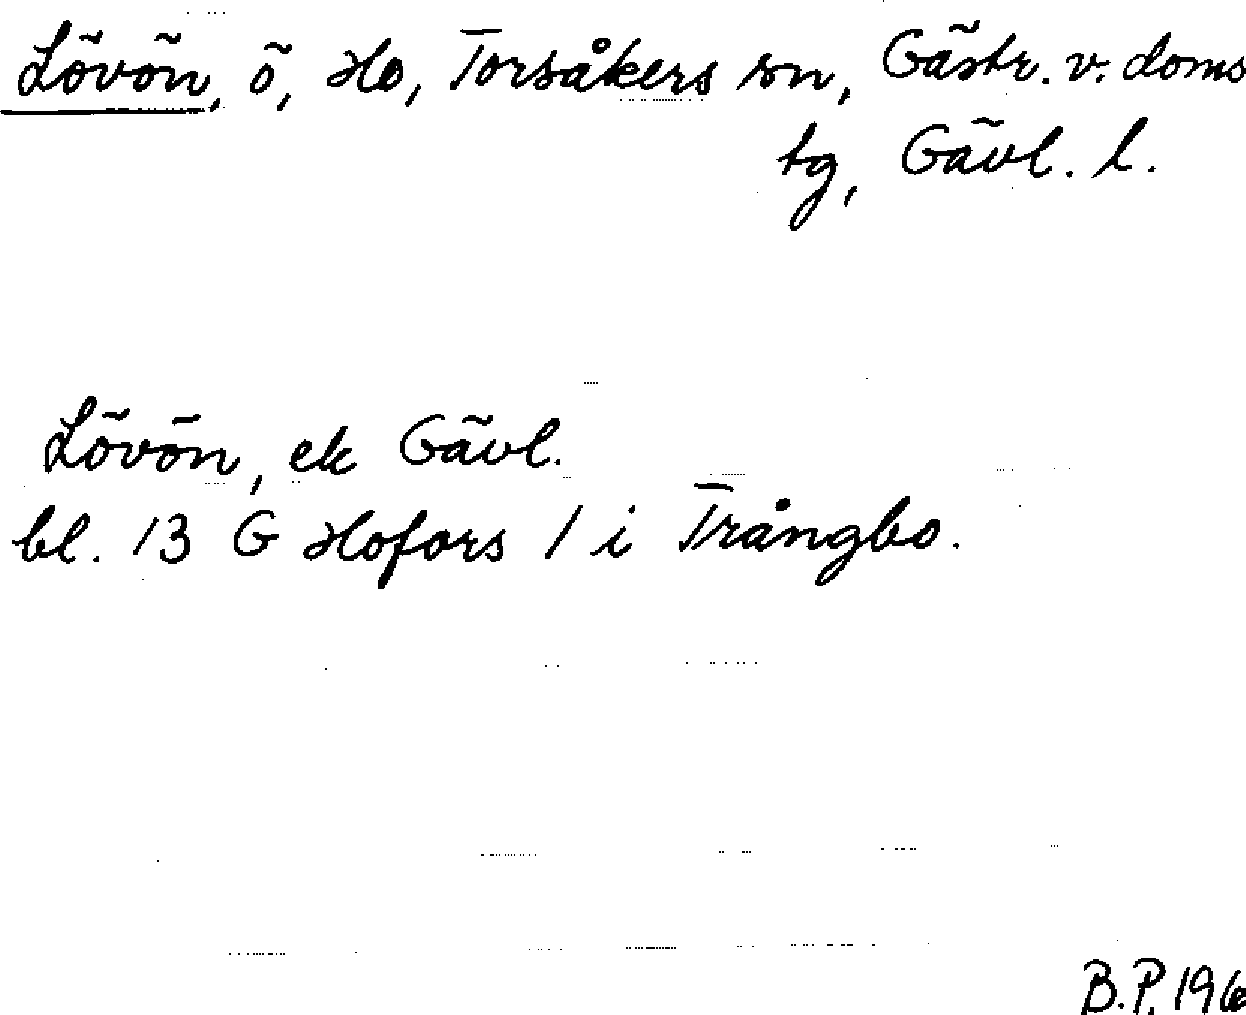 Lövön, ö, Ho, Torsåkers sn, Gästr. v. doms
tg, Gävl. l.
Lövön, ek Gävl.
bl. 13 G Hofors 1 i Trångbo.
B.P. 196